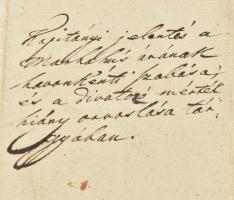 Kapitányi jelentés a
Marhahús árának
havonkénti szabása,
és a divatozó mérték
hiány orvoslása tár-
gyában.